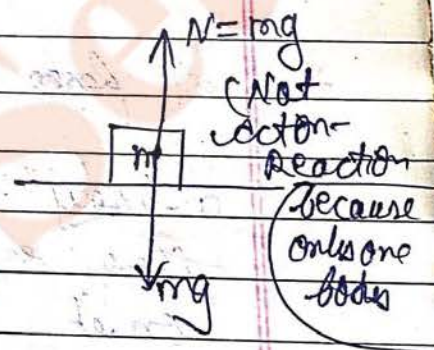 N = mg
(Not
acton-
reaction
because
only one
body
m
mg